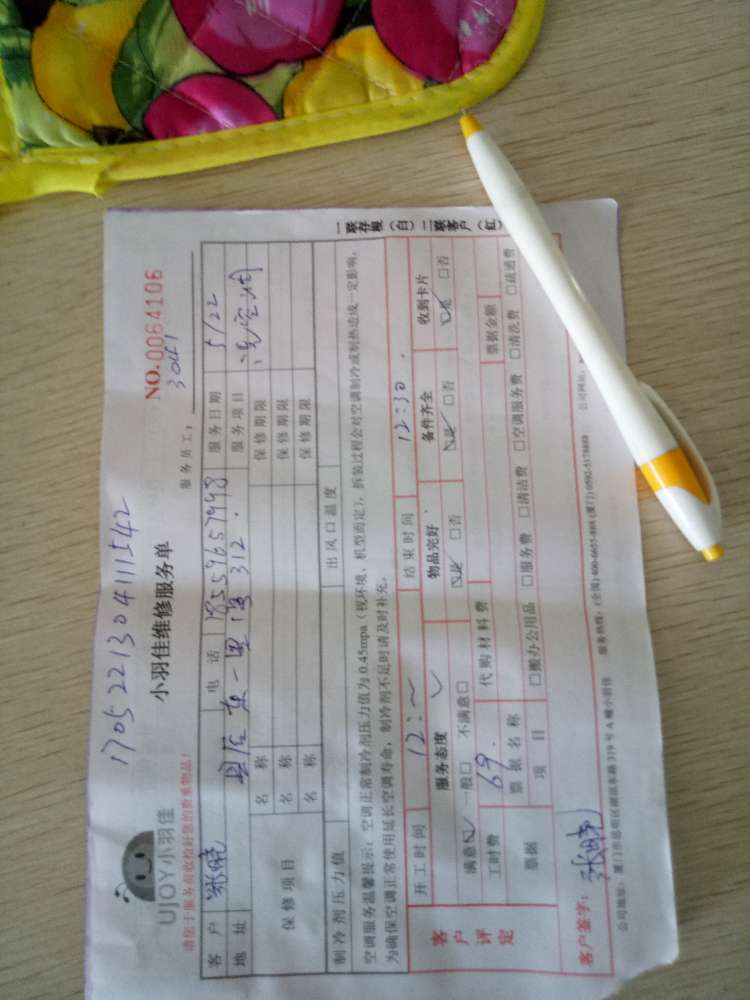 170522130411542
UJOY小羽佳
小羽佳维修服务单
NO.0064106
请您于服务前收拾好您的贵重物品!
服务员工:
3041
客户 张晓 电话 18559657998 服务日期 5/22
地址 312 服务项目 洗空调
保修项目 名称 保修期限
名称 保修期限
名称 保修期限
制冷剂压力值 出风口温度
空调服务温馨提示:空调正常制冷剂压力值为0.45mpa(视环境、机型而定),拆装过程会对空调制冷或制热造成一定影响,
为确保空调正常使用延长空调寿命,制冷剂不足时请及时补充。
一联存根(白) 二联客户(红
客户评定
开工时间 12:~ 结束时间 12:30.
服务态度 物品完好 备件齐全 收到卡片
满意☑ 一般□ 不满意□ ☑是 □否 ☑是 □否 ☑是 □否
工时费 69. 代购材料费 票据金额
票据 票据名称 □搬办公用品 □服务费 □清洁费 □空调服务费 □清洗费 □疏通费
项目
客户签字: 张晓
公司地址:厦门市思明区湖滨东路319号A幢小羽佳 服务热线:(全国)400-6655-888 (厦门)0592-5178888 公司网址: